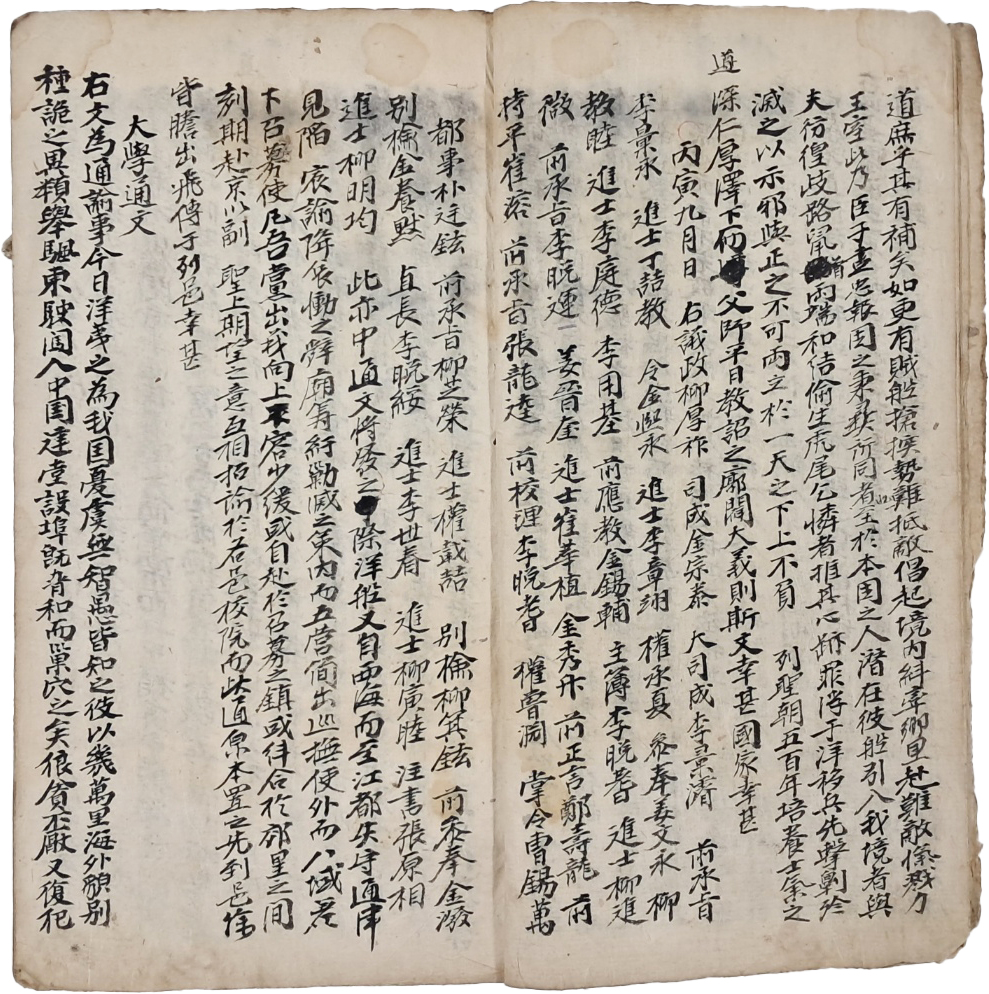 道庶乎其有補矣如更有賊船搶攘勢難抵敵倡起境內糾率鄉里赴難敵愾戮力
王室此乃臣子盡忠報国之秉彛所同者至於本国之人潛在彼船引入我境者與
夫彷徨歧路鼠首兩端和結倫生虎尾公憐者推其心跡罪浮于洋移兵先擊剿殄
滅之以示邪與正之不可両立於一天之下上不負 列聖朝五百年培養士氣之
深仁厚澤下而 父師平日教詔之廓闢大義則斯文幸甚國家幸甚
道
丙寅九月日 右議政柳厚祚 司成金宗泰 大司成李景濬 前承旨
李彙承 進士丁誥教 令金熙永 進士李章翊 權承夏 參奉姜文永 柳
教睦 進士李庭德 李用基 前應教金錫輔 主簿李晩耆 進士柳進
徽 前承旨李晩運 姜晉奎 進士崔華植 金秀升 前正言鄭壽龍 前
持平崔溶 前承旨張龍逵 前校理李晚耆 權豊洞 掌令曺錫萬
都事朴廷鉉 前承旨柳芝榮 進士權載喆 別檢柳箕鉉 前參奉金潑
別檢金養默 直長李晩綏 進士李世春 進士柳寅睦 注書張原相
進士柳明均 此亦中通文將發之 際洋船又自西海而至江都失守通津
見陷 宸諭降哀慟之辭廟筭紆勦滅之策內而五營備出巡撫使外而八域君
下召募使凡吾黨出我向上不容少緩或自赴於召募之鎮或糾合於鄉里之間
刻期赴京以副 聖上期望之意互相拓諭於各邑校院而此道原本置之先到邑餘
皆謄出飛傳于列邑幸甚
大學通文
右文為通諭事今日洋夷之為我国憂虞無智愚皆知之彼以幾萬里海外額別
種詭之異類擧騶東駛闖入中国達堂設埠旣脅和而巢穴之矣狼貪丕厭又復犯